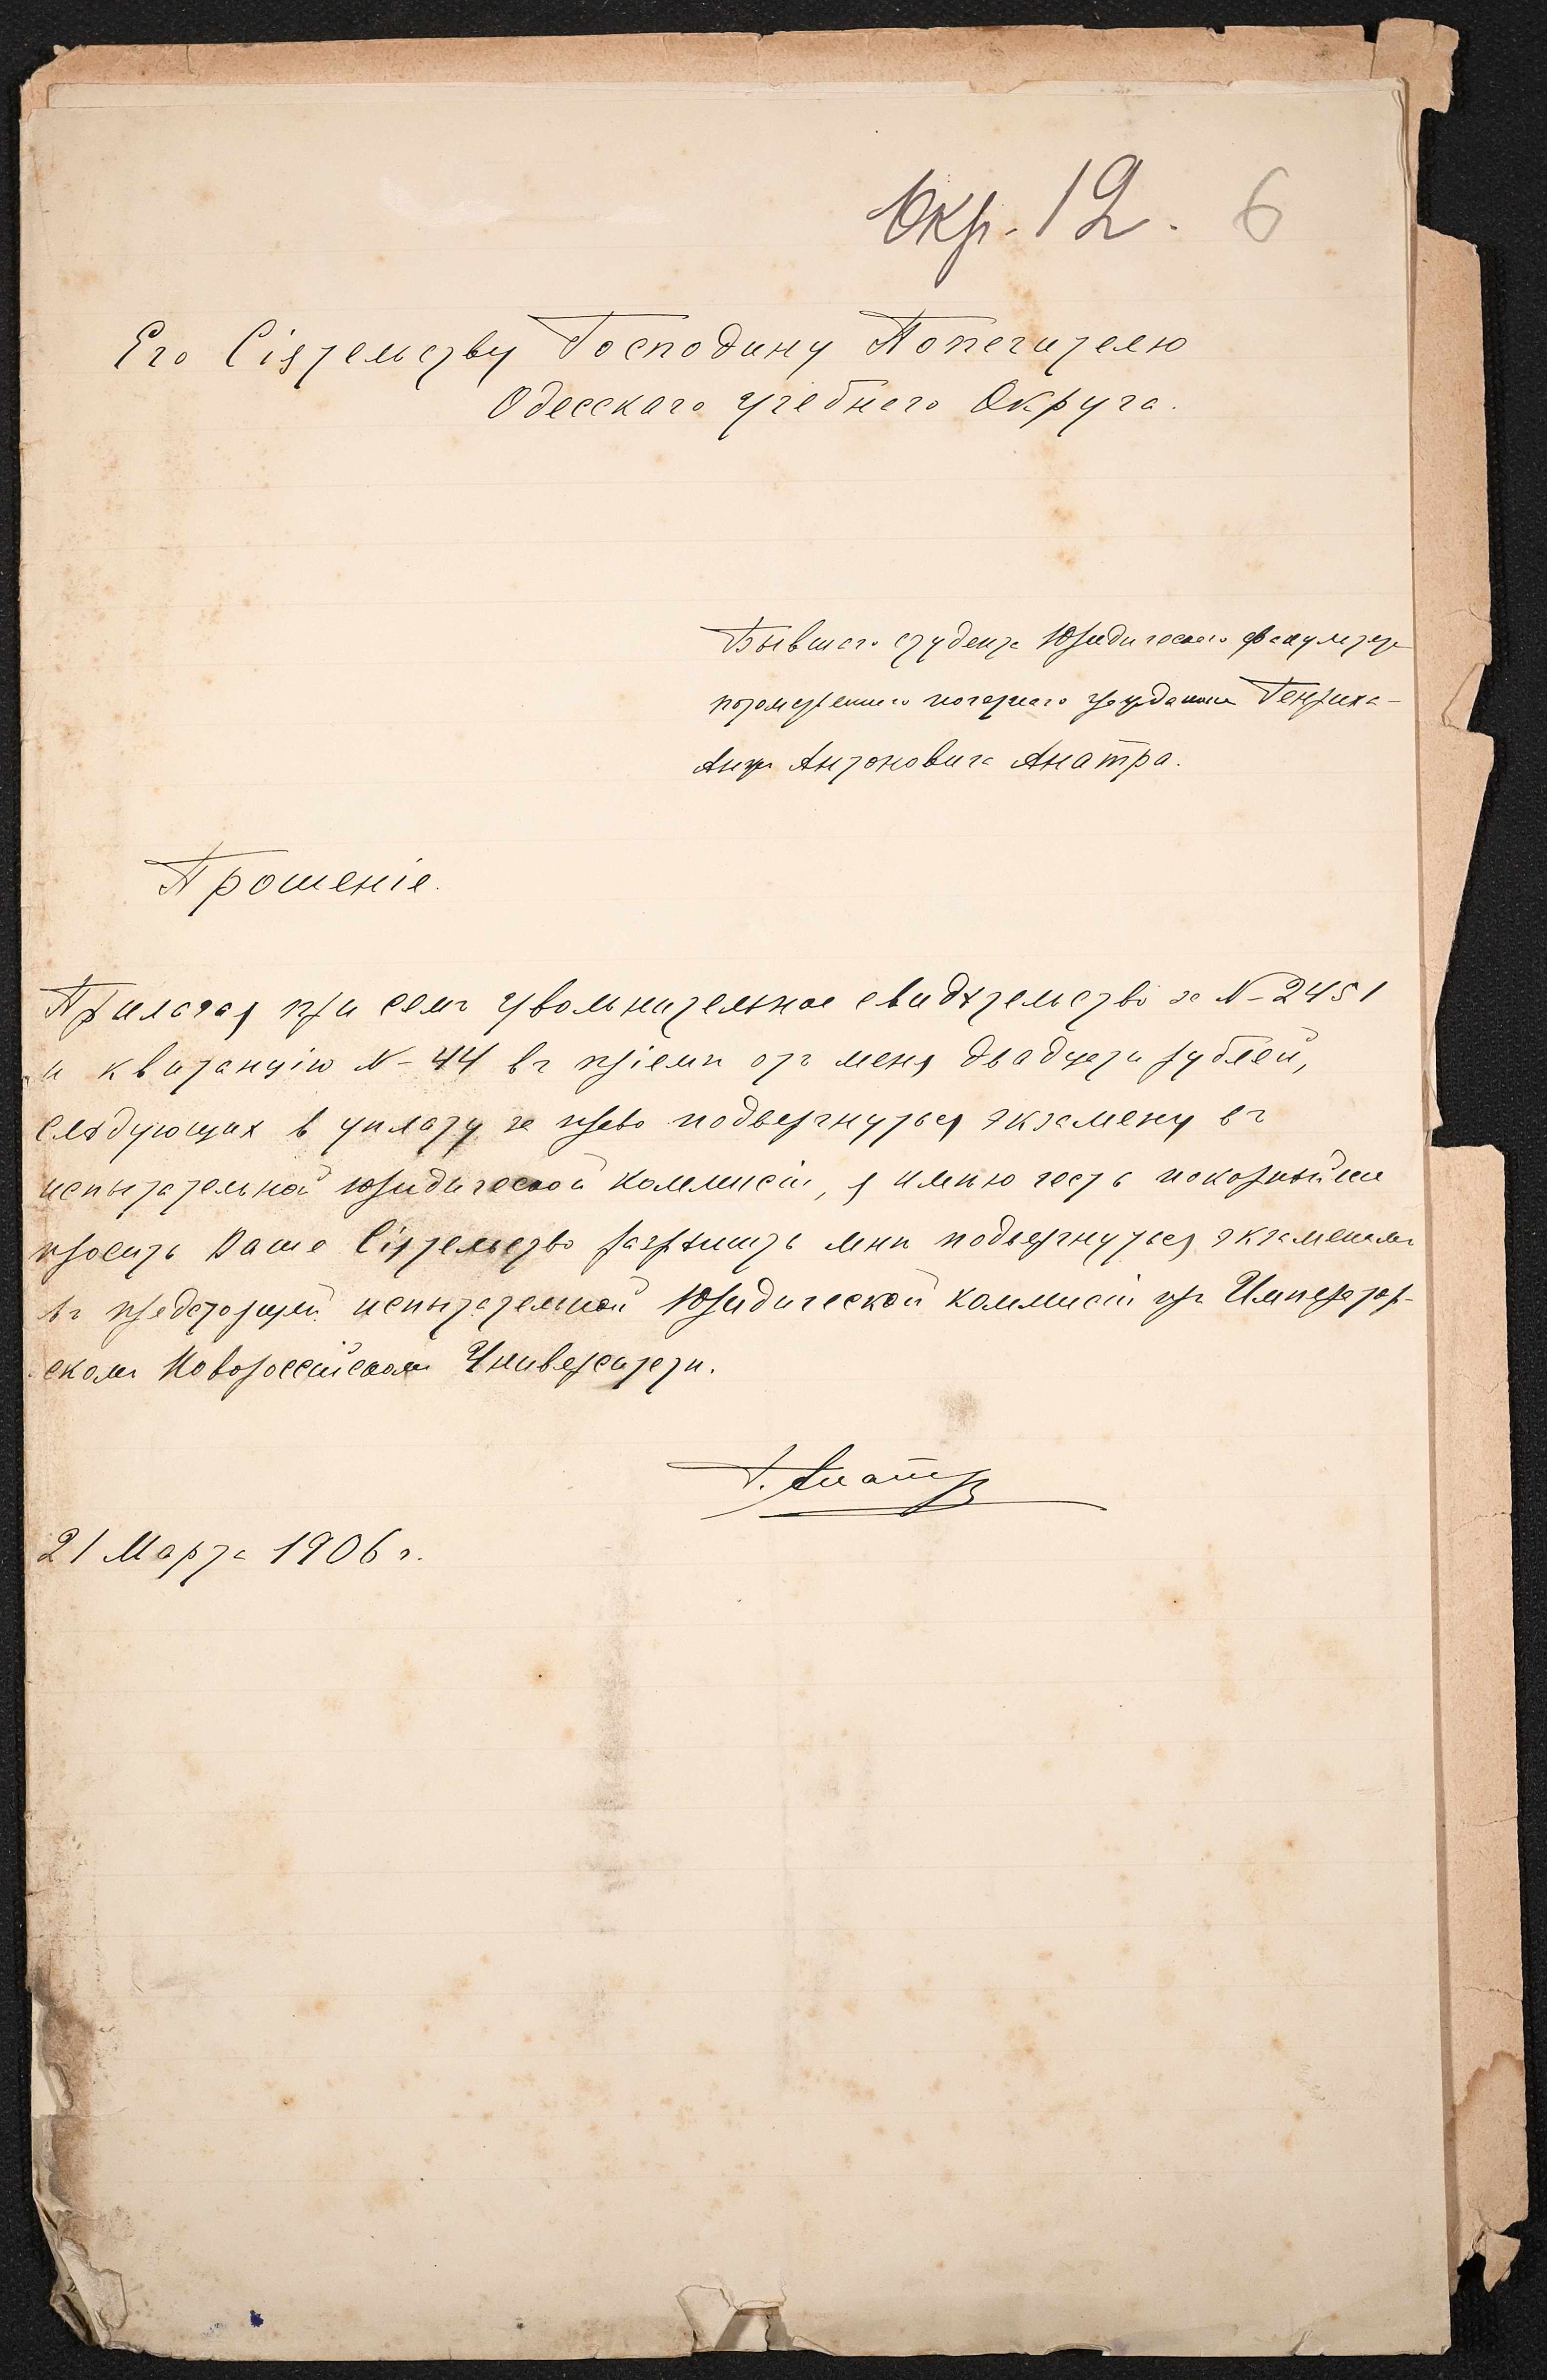 Окр. 12. 6
Его Сіятельству Господину Попечителю
Одесскаго учебнаго Округа.
Бывшаго студента Юридическаго факультета
потомственнаго почетнаго гражданина Генриха-
Антоновича Анатра.
Прошеніе.
Прилагая при семъ увольнительное свидѣтельство за №2451
и квитанцію №44 въ пріемѣ отъ меня двадцати рублей,
слѣдующихъ в уплату за право подвергнуться экзамену въ
испытательной юридической коммисіи, я имѣю честь покорнѣйше
просить Ваше Сіятельство разрѣшить мнѣ подвергнуться экзаменамъ
въ предстоящей испытательной Юридической коммисіи при Император-
скомъ Новороссійскомъ Университетѣ.
Г. Анатра
21 Марта 1906 г.